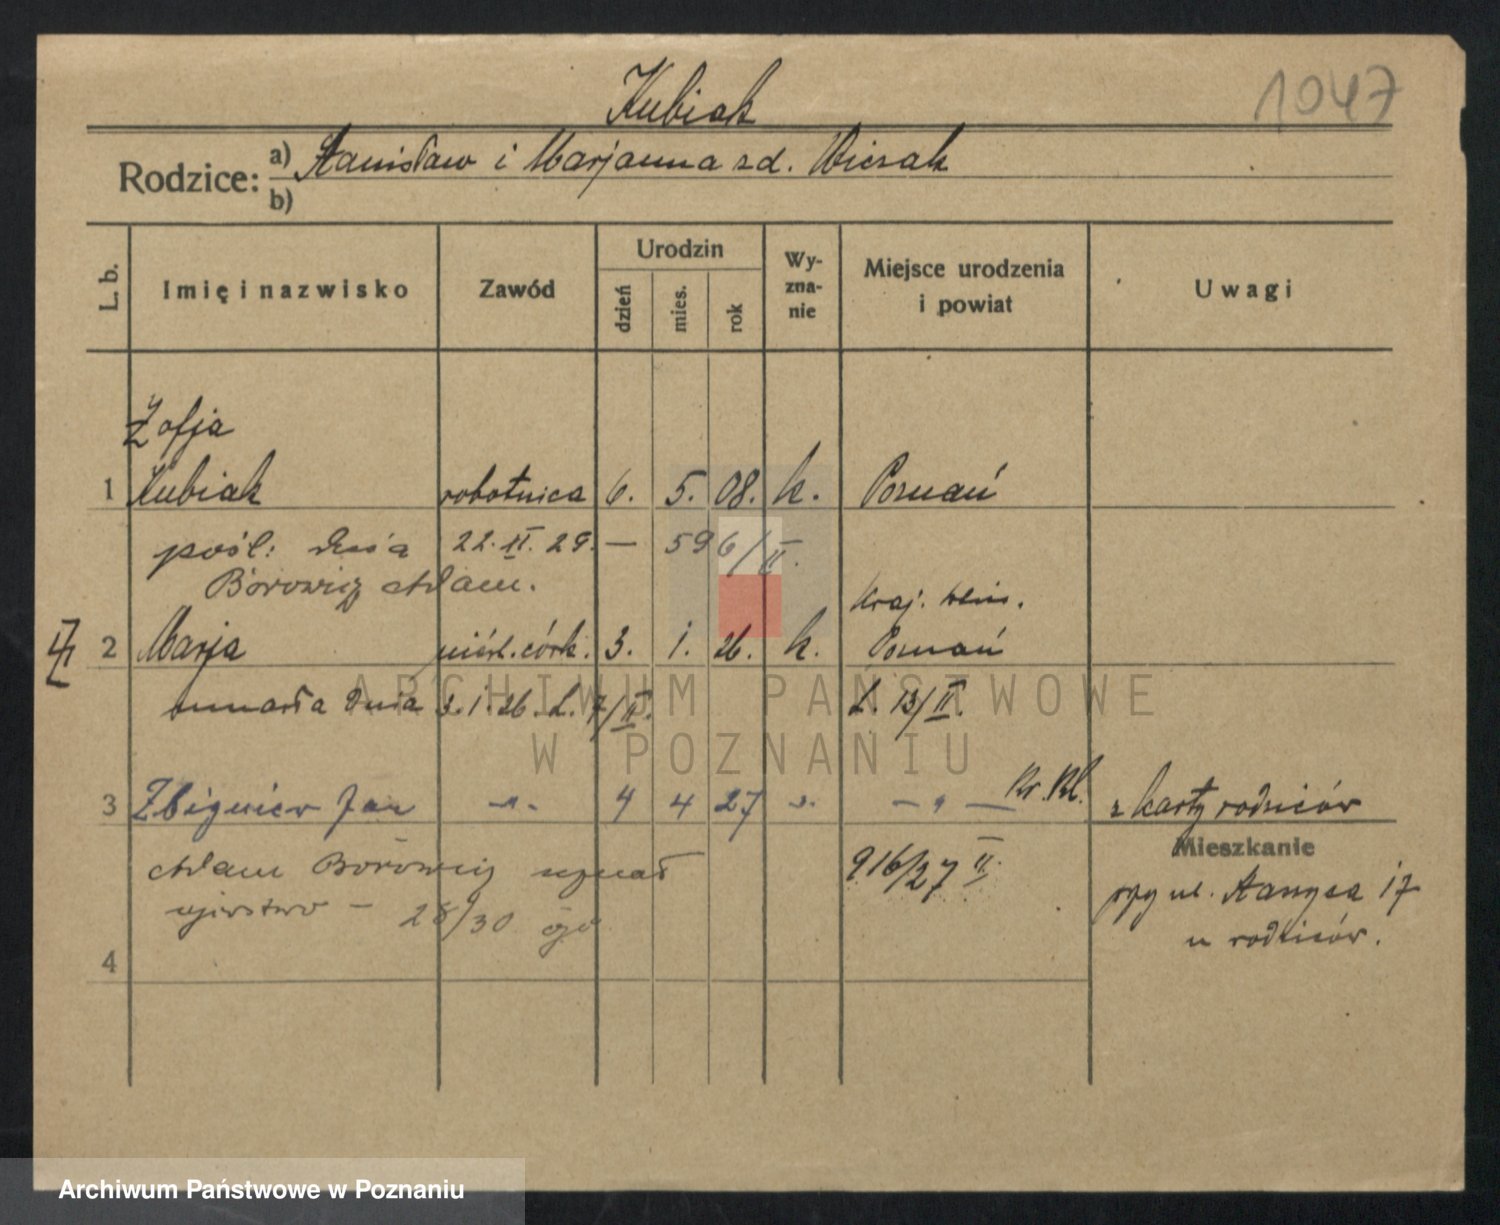 Kubiak
1047
Rodzice: a) Stanisław i Marjanna zd. Wiczak
b)
L. b.
Imię i nazwisko
Zawód
Urodzin
dzień
mies.
rok
Wy-
zna-
nie
Miejsce urodzenia
i powiat
Uwagi
Zofja
1 Kubiak robotnica 6. 5. 08. k. Poznań
pośl: dnia 22. II. 29. — 596/II.
Borowicz Adam.
Kraj. klin.
II 2 Marja nieśl. córk. 3. 1. 26. k. Poznań
umarła dnia 3. 1. 26. L. 7/II. L. 13/II.
3 Zbigniew Jan -"- 4 4 27 -"- — " — Kr. Kl. z karty rodziców
Adam Borowicz uznał 916/27 II. Mieszkanie
ojcostwo — 28/30 przy ul. 17
4 u rodziców.
ARCHIWUM PAŃSTWOWE
W POZNANIU
Archiwum Państwowe w Poznaniu